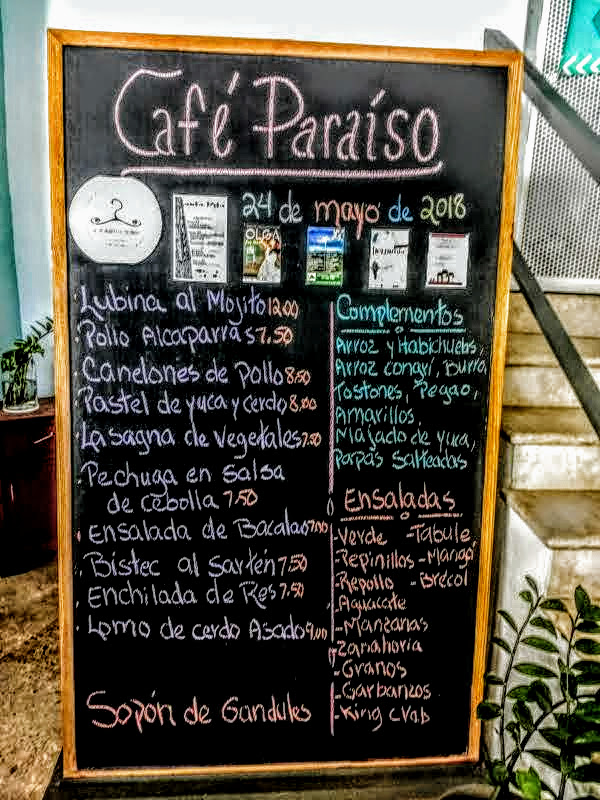 Café Paraíso
24 de mayo de 2018
OLGA
Lubina al Mojito 12.00
Pollo Alcaparras 7.50
Canelones de pollo 8.50
Pastel de yuca y cerdo 8.00
Lasagna de Vegetales 7.50
Pechuga en salsa
de cebolla 7.50
Ensalada de Bacalao 7.00
Bistec al Sartén 7.50
Enchilada de Res 7.50
Lomo de cerdo Asado 9.00
Sopón de Gandules
Complementos
Arroz y Habichuelas,
Arroz congrí, Burro,
Tostones, Pegao,
Amarillos,
Majado de yuca,
Papas Salteadas
Ensaladas
-Verde -Tabule
-Pepinillos -Mango
-Repollo -Brecol
-Aguacate
-Manzanas
-Zanahoria
-Granos
-Garbanzos
-King Crab